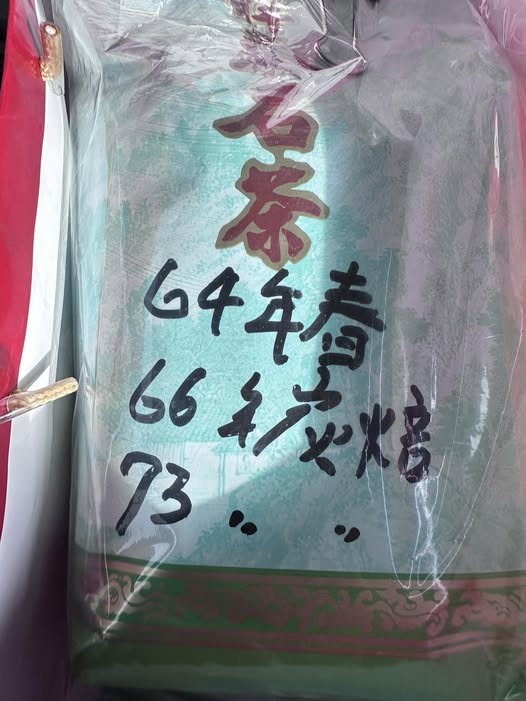 名茶
64年春
66年炭焙
73 〃 〃